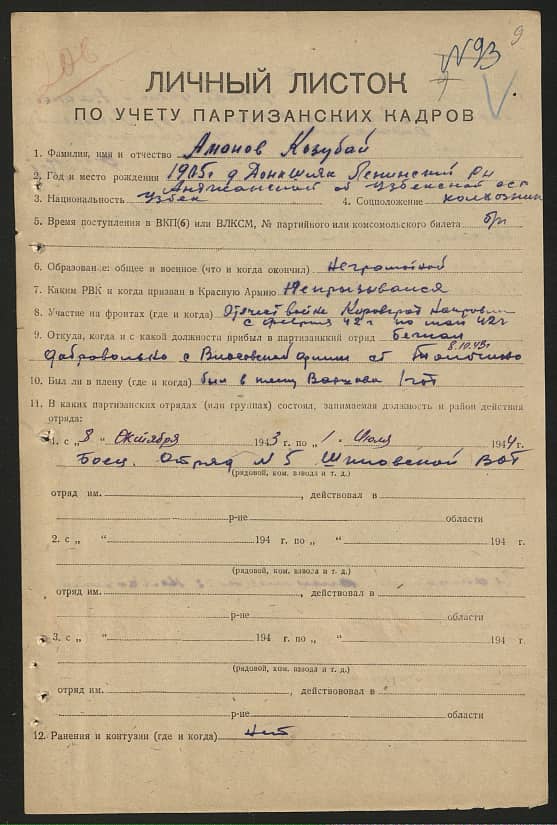 9
№93
206
ЛИЧНЫЙ ЛИСТОК
ПО УЧЕТУ ПАРТИЗАНСКИХ КАДРОВ
1. Фамилия, имя и отчество Аманов Козубай
2. Год и место рождения 1905г д Ленинский рн
Андижанской об Узбекской сср
3. Национальность Узбек 4. Соцположение колхозник
5. Время поступления в ВКП(б) или ВЛКСМ, № партийного или комсомольского билета б/п
6. Образование: общее и военное (что и когда окончил) Неграмотной
7. Каким РВК и когда призван в Красную Армию Непризывался
8. Участие на фронтах (где и когда) Отечест войне
с февраля 42г по май 42г
9. Откуда, когда и с какой должности прибыл в партизанкий отряд Бежал
8.10.43г
добровольно с Власовской армии ст Толочино
10. Был ли в плену (где и когда) был в плену Варшава 1 год
11. В каких партизанских отрядах (или группах) состоял, занимаемая должность и район действия
отряда:
1. с „ 8 „ Октября 1943 г. по „ 1 „ Июля 1944 г.
Боец. Отряд №5 Шкловской ВОГ
(рядовой, ком. взвода и т. д.)
отряд им. , действовал в
р-не области
2. с „ “ 194 г. по „ “ 194 г.
(рядовой, ком. взвода и т. д.)
отряд им. , действовал в
р-не области
3. с „ “ 194 г. по „ “ 194 г.
(рядовой, ком. взвода и т. д.)
отряд им. , действововал в
р-не области
12. Ранения и контузии (где и когда) нет